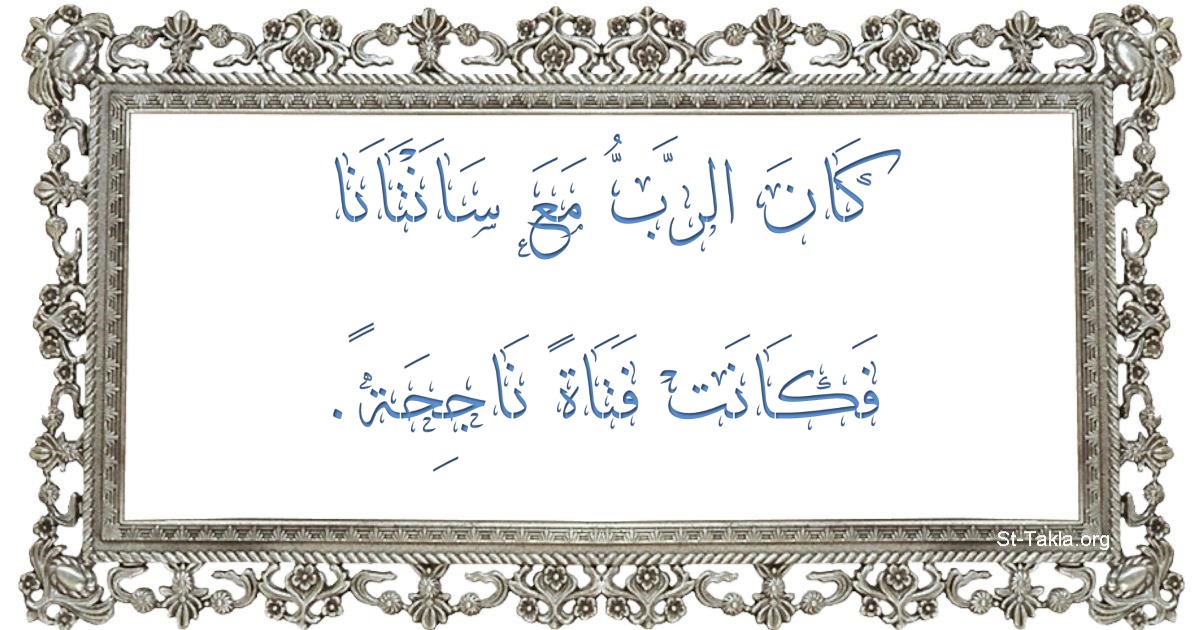 كَانَ الرَّبُّ مَعَ سَانْتَانَا
فَكَانَتْ فَتَاةً نَاجِحَةً.
St-Takla.org